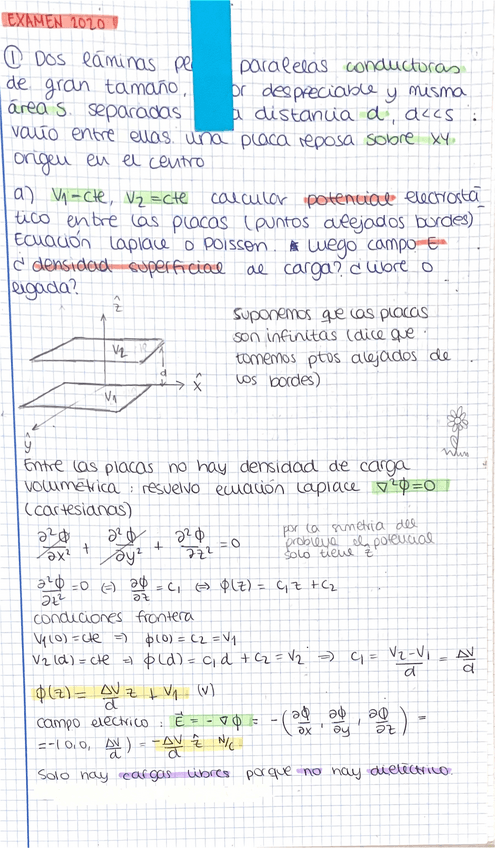 EXAMEN 2020
① Dos láminas pe paralelas conductoras
de gran tamaño, or despreciable y misma
área S. separadas a distancia d, d<<s :
vacío entre ellas. una placa reposa sobre XY.
origen en el centro
a) V₁-cte, V₂=cte calcular potencial electrostá
tico entre las placas (puntos alejados bordes)
Ecuación Laplace o Poisson. Luego campo E
¿densidad superficial de carga? ¿Libre o
ligada?
ẑ
V₂
d
x̂
V₁
ŷ
Suponemos que las placas
son infinitas (dice que
tomemos ptos alejados de
los bordes)
Entre las placas no hay densidad de carga
volumétrica : resuelvo ecuación Laplace ∇²Φ=0
(cartesianas)
∂²Φ/∂x² + ∂²Φ/∂y² + ∂²Φ/∂z² = 0
por la simetría del
problema el potencial
solo tiene z
∂²Φ/∂z² = 0 (=) ∂Φ/∂z = C₁ (=) Φ(z) = C₁z + C₂
condiciones frontera
V₁(0) = cte => Φ(0) = C₂ = V₁
V₂(d) = cte => Φ(d) = C₁d + C₂ = V₂ => C₁ = V₂-V₁/d = ΔV/d
Φ(z) = ΔV/d z + V₁ (V)
campo eléctrico : E⃗ = -∇Φ = -(∂Φ/∂x, ∂Φ/∂y, ∂Φ/∂z) =
= -(0,0, ΔV/d) = -ΔV/d ẑ N/C
Solo hay cargas libres porque no hay dieléctrico.